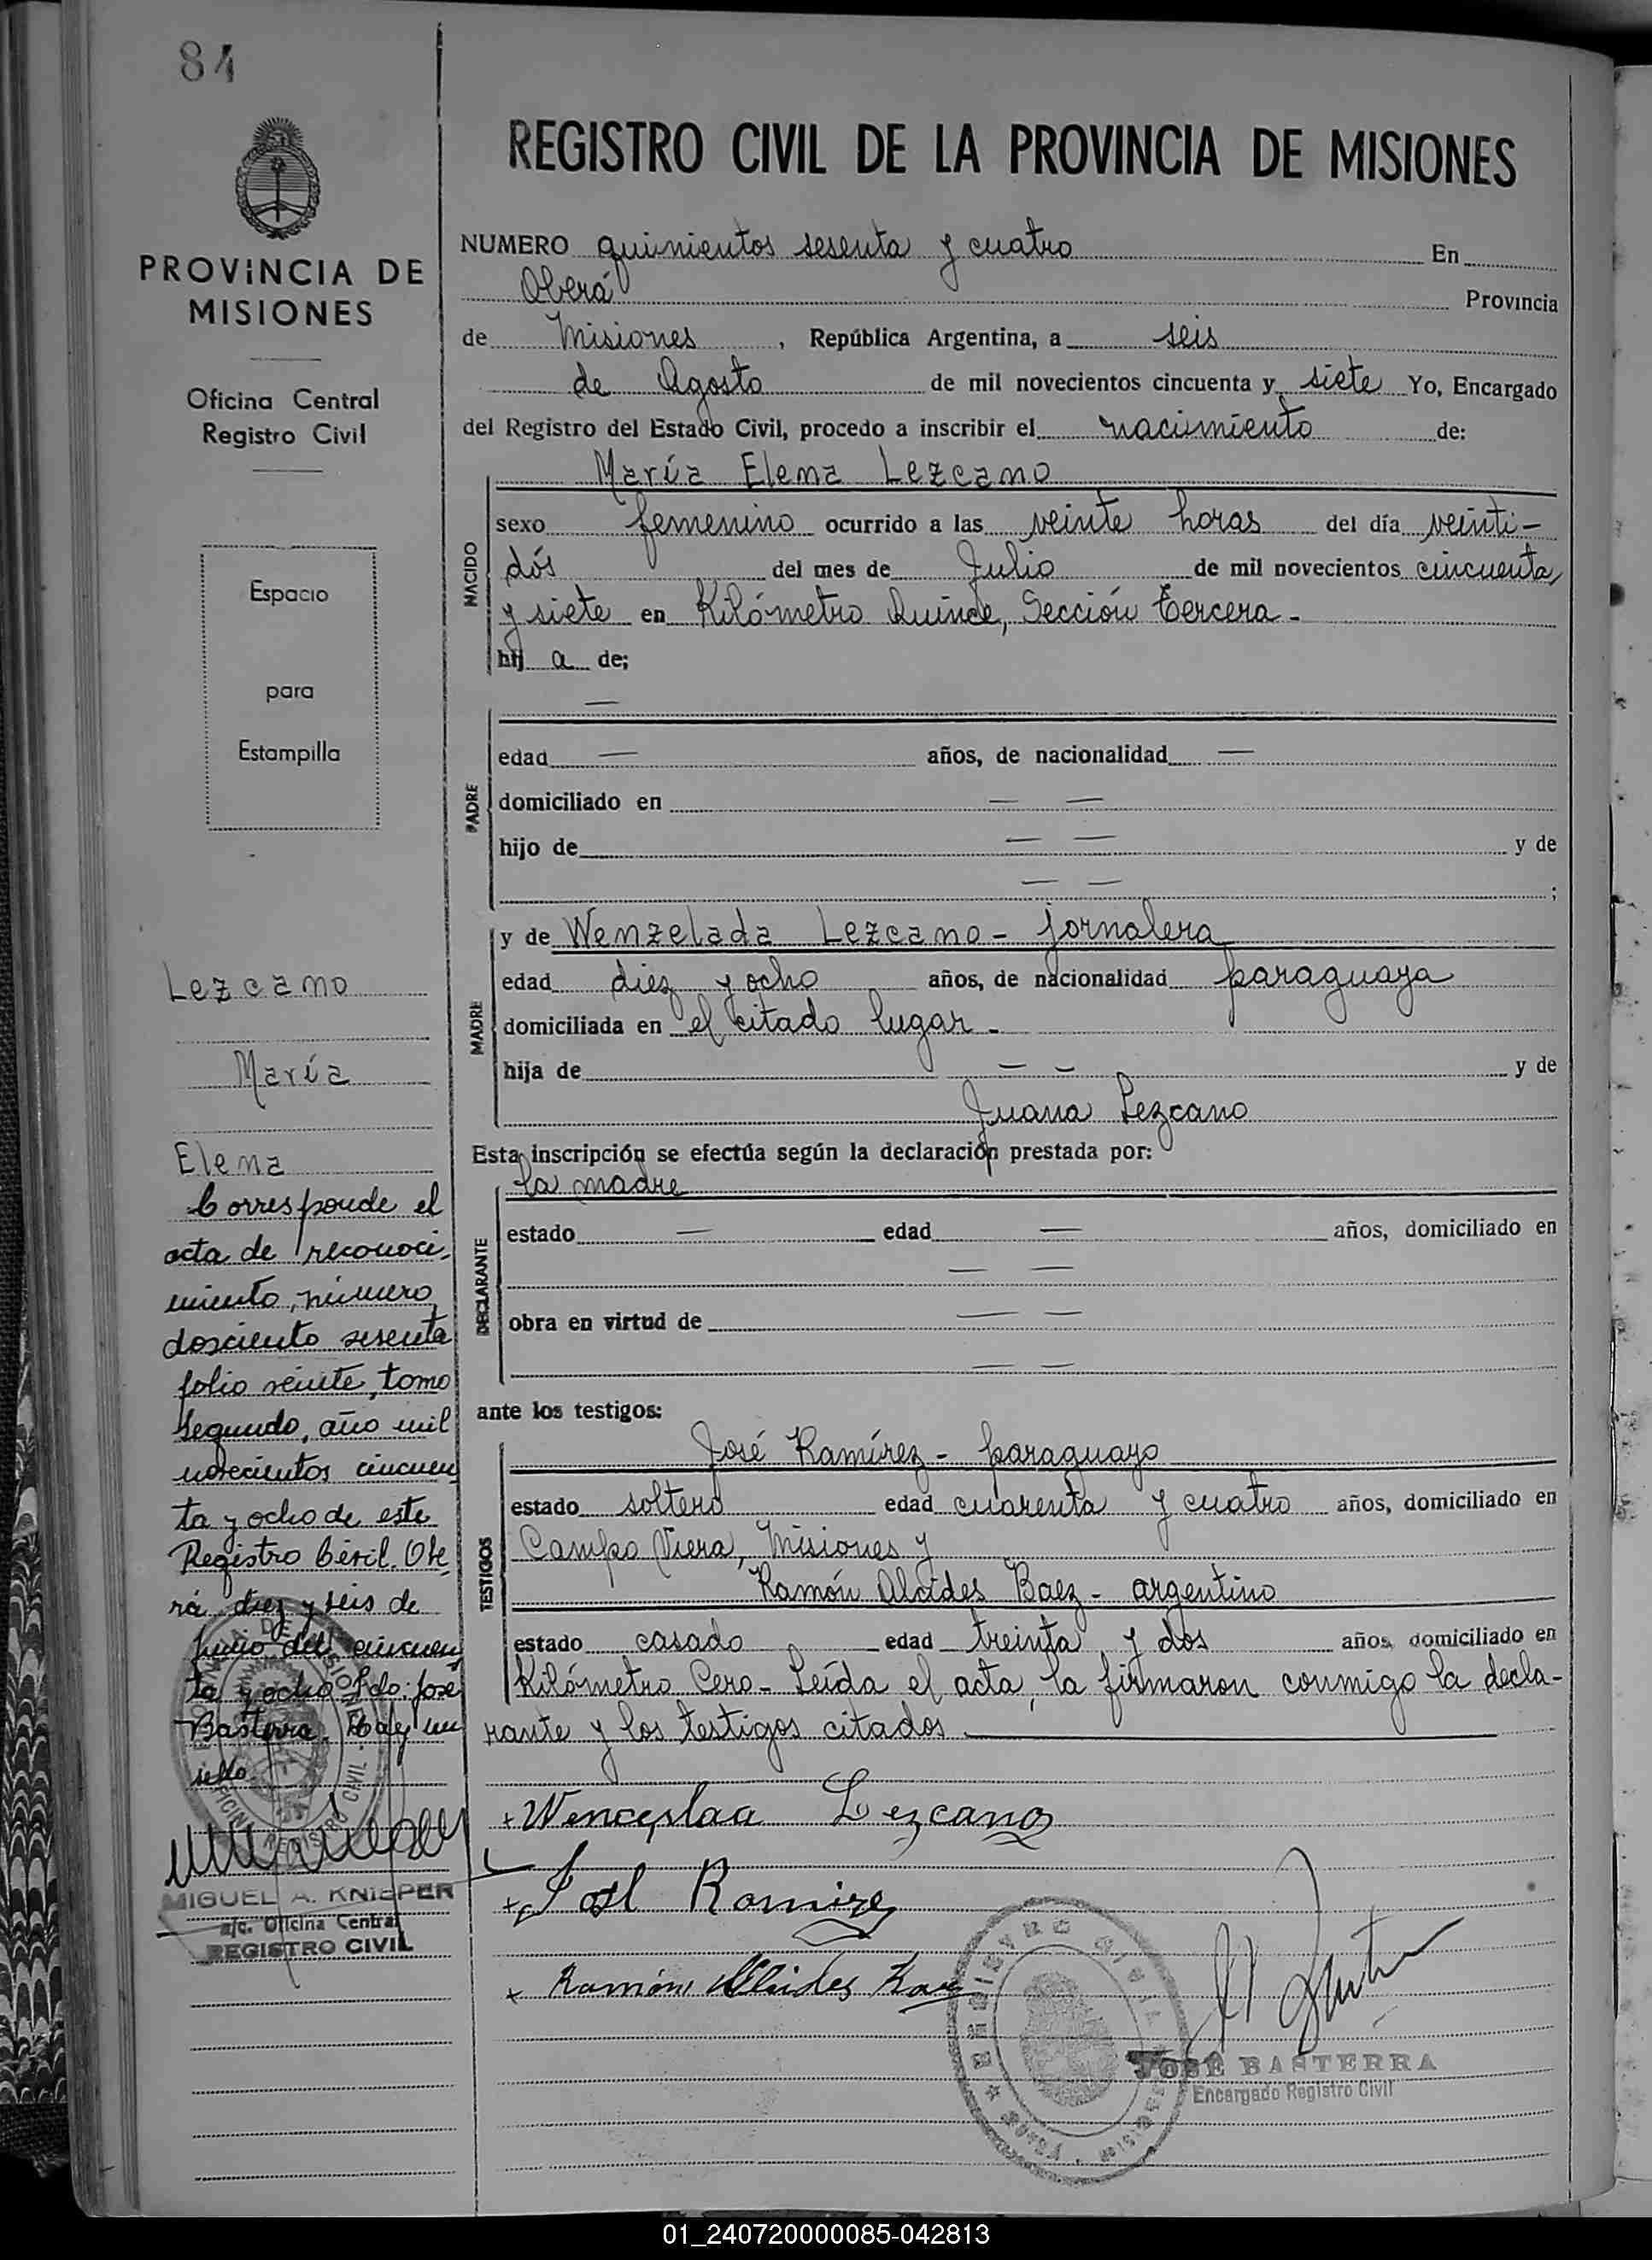 84
REGISTRO CIVIL DE LA PROVINCIA DE MISIONES
PROVINCIA DE
MISIONES
Oficina Central
Registro Civil
Espacio
para
Estampilla
NUMERO quinientos sesenta y cuatro En
Oberá Provincia
de Misiones, República Argentina, a seis
de Agosto de mil novecientos cincuenta y siete Yo, Encargado
del Registro del Estado Civil, procedo a inscribir el nacimiento de:
María Elena Lezcano
NACIDO
sexo femenino ocurrido a las veinte horas del día veinti-
dós del mes de Julio de mil novecientos cincuenta
y siete en Kilómetro Quince, Sección Tercera-
hij a de;
—
PADRE
edad — años, de nacionalidad —
domiciliado en — —
hijo de — — y de
— — ;
MADRE
y de Wenzelada Lezcano - jornalera
edad diez y ocho años, de nacionalidad paraguaya
domiciliada en el citado lugar -
hija de — — y de
Juana Lezcano
Esta inscripción se efectúa según la declaración prestada por:
la madre
DECLARANTE
estado — edad — años, domiciliado en
— —
obra en virtud de — —
— —
ante los testigos:
TESTIGOS
José Ramírez - paraguayo
estado soltero edad cuarenta y cuatro años, domiciliado en
Campo Viera, Misiones y
Ramón Alcides Baez - argentino
estado casado edad treinta y dos años, domiciliado en
Kilómetro Cero - Leída el acta, la firmaron conmigo la decla-
rante y los testigos citados
+ Wenceslaa Lezcano
+ José Ramirez
+ Ramón Alcides Baez
JOSÉ BASTERRA
Encargado Registro Civil
Lezcano
María
Elena
Corresponde el
acta de reconoci-
miento, número
dosciento sesenta
folio veinte, tomo
segundo, año mil
novecientos cincuen
ta y ocho de este
Registro Civil. Obe
rá diez y seis de
Junio del cincuen
ta y ocho Fdo: José
Basterra. Hay un
sello
MIGUEL A. KNIEPER
a/c. Oficina Central
REGISTRO CIVIL
01_240720000085-042813